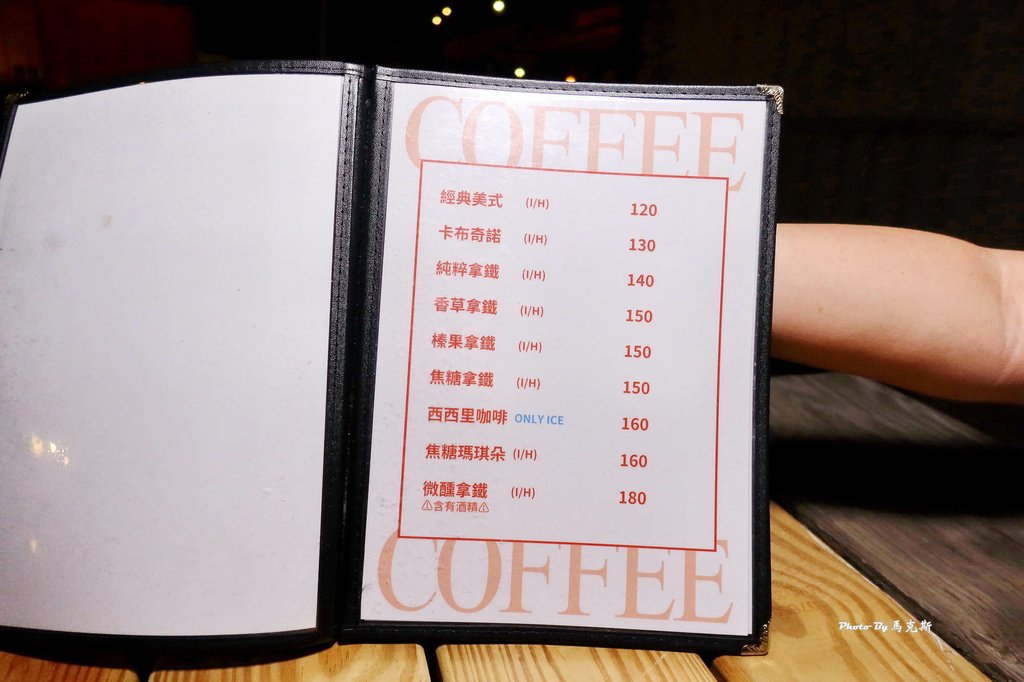 COFFEE
經典美式 (I/H) 120
卡布奇諾 (I/H) 130
純粹拿鐵 (I/H) 140
香草拿鐵 (I/H) 150
榛果拿鐵 (I/H) 150
焦糖拿鐵 (I/H) 150
西西里咖啡 ONLY ICE 160
焦糖瑪琪朵 (I/H) 160
微醺拿鐵 (I/H) 180
⚠含有酒精⚠
COFFEE
Photo By 馬克斯